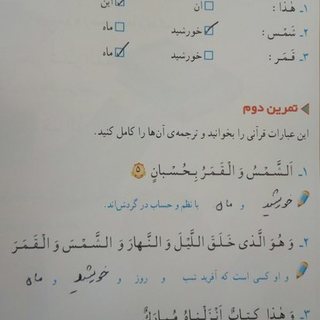 ۱ـ هٰذا : آن این
۲ـ شَمْس : خورشید ماه
۳ـ قَمَر : خورشید ماه
تمرین دوم
این عبارات قرآنی را بخوانید و ترجمه‌ی آن‌ها را کامل کنید.
۱ـ اَلشَّمْسُ وَ الْقَمَرُ بِحُسْبانٍ ۵
خورشید و ماه با نظم و حساب در گردش‌اند.
۲ـ وَ هُوَ الَّذی خَلَقَ اللَّیْلَ وَ النَّهارَ وَ الشَّمْسَ وَ الْقَمَرَ
و او کسی است که آفرید شب و روز و خورشید و ماه
۳ـ وَ هٰذا کِتابٌ اَنْزَلْناهُ مُبارَکٌ